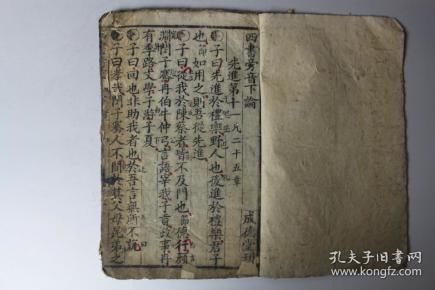 四書旁音下論
成德堂
先進第十一 凡二十五章
子曰先進於禮樂野人也後進於禮樂君子
也 節 如用之則吾從先進
子曰從我於陳蔡者皆不及門也 節 德行顏
淵閔子騫冉伯牛仲弓言語宰我子貢政事冉
有季路文學子游子夏
子曰回也非助我者也於吾言無所不說
子曰孝哉閔子騫人不間於其父母昆弟之
孔夫子旧书网
www.kongfz.com